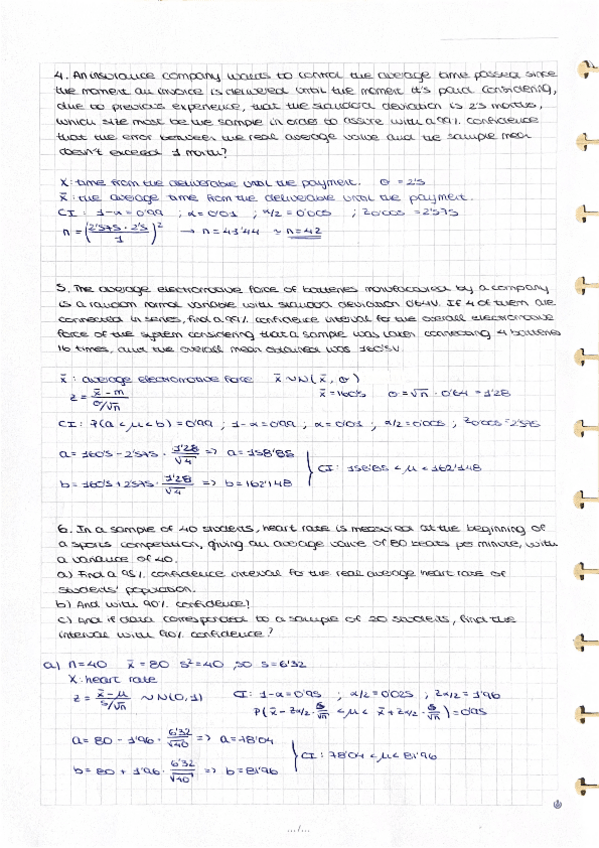 4. An insurance company wants to control the average time passed since
the moment an invoice is delivered until the moment it's paid. Considering,
due to previous experience, that the standard deviation is 2'5 months,
which size must be the sample in order to assure with a 99% confidence
that the error between the real average value and the sample mean
doesn't exceed 1 month?
X: time from the deliverable until the payment. σ = 2'5
x̄: the average time from the deliverable until the payment.
CI: 1-α = 0'99 ; α = 0'01 ; α/2 = 0'005 ; z0'005 = 2'575
n = (2'575 · 2'5 / 1)² → n = 41'44 ≈ n = 42
5. The average electromotive force of batteries manufactured by a company
is a random normal variable with standard deviation 0'64V. If 4 of them are
connected in series, find a 99% confidence interval for the overall electromotive
force of the system considering that a sample was taken connecting 4 batteries
16 times, and the overall mean obtained was 160'5V.
x̄: average electromotive force x̄ ~ N(x̄, σ)
z = x̄ - m / σ/√n x̄ = 160'5 σ = √n · 0'64 = 1'28
CI: P(a < μ < b) = 0'99 ; 1-α = 0'99 ; α = 0'01 ; α/2 = 0'005 ; z0'005 = 2'575
a = 160'5 - 2'575 · 1'28/√4 => a = 158'85
CI: 158'85 < μ < 162'148
b = 160'5 + 2'575 · 1'28/√4 => b = 162'148
6. In a sample of 40 students, heart rate is measured at the beginning of
a sports competition, giving an average value of 80 beats per minute, with
a variance of 40.
a) Find a 95% confidence interval for the real average heart rate of
students' population.
b) And with 90% confidence?
c) And if data corresponded to a sample of 20 students, find the
interval with 90% confidence?
a) n = 40 x̄ = 80 s² = 40, so s = 6'32
X: heart rate
z = x̄ - μ / s/√n ~ N(0,1) CI: 1-α = 0'95 ; α/2 = 0'025 ; zα/2 = 1'96
P(x̄ - zα/2 · s/√n < μ < x̄ + zα/2 · s/√n) = 0'95
a = 80 - 1'96 · 6'32/√40 => a = 78'04
CI: 78'04 < μ < 81'96
b = 80 + 1'96 · 6'32/√40 => b = 81'96
.../...